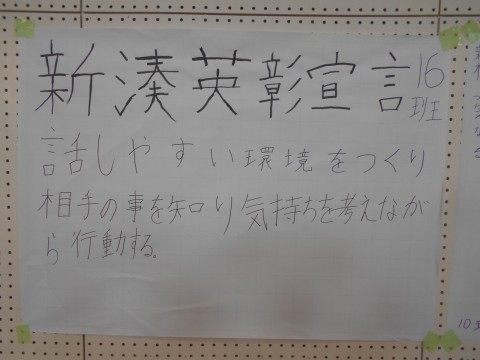 新湊英彰宣言
16班
話しやすい環境をつくり
相手の事を知り気持ちを考えなが
ら行動する。
10班